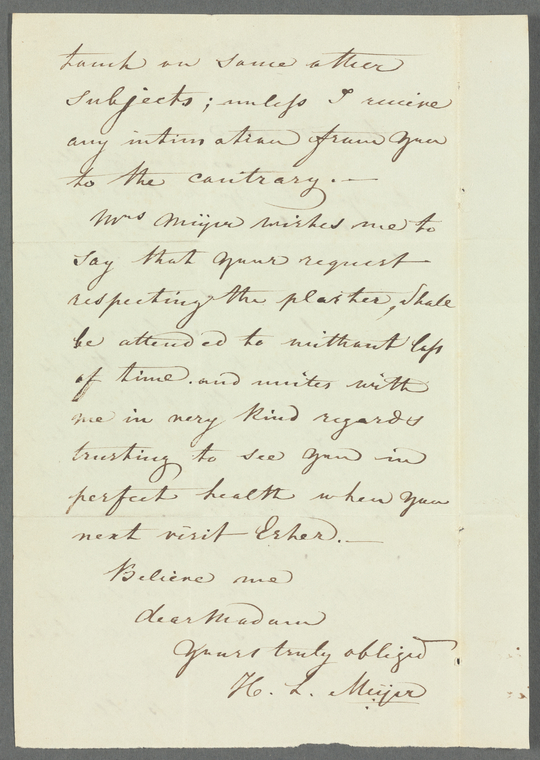 touch on some other
subjects; unless I receive
any intimation from you
to the contrary.—
Mrs Meÿer wishes me to
say that your request
respecting the plaster, shall
be attended to without loss
of time. and unites with
me in very kind regards
trusting to see you in
perfect health when you
next visit Esher.—
Believe me
dear Madam
Yours truly obliged
H. L. Meÿer